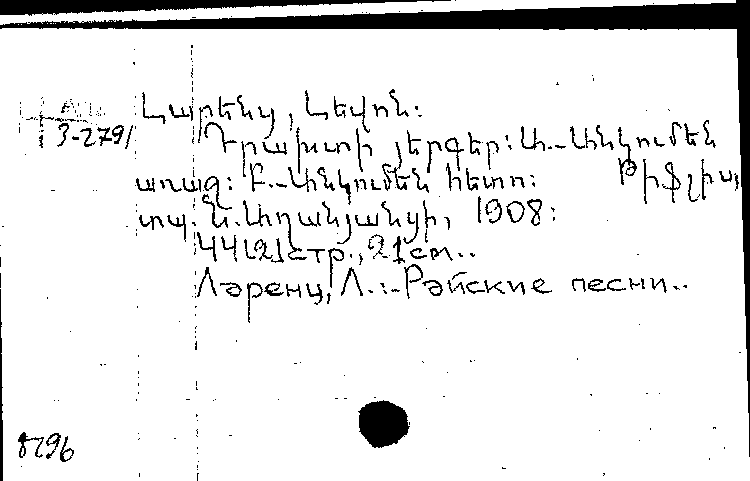 Լարենց, Լեվոն:
3-2791
Դրախտի յերգեր: Ա.-Անկումեն
առաջ: Բ.-Անկումեն հետո: Թիֆլիս,
տպ. Ն. Աղանյանցի, 1908:
44[2]стр., 21см..
Ларенц, Л.:-Райские песни..
8296